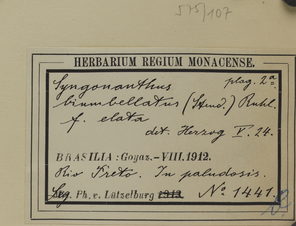 575/107
HERBARIUM REGIUM MONACENSE.
Syngonanthus plag. 2a.
biumbellatus (Steud.) Ruhl.
f. elata
det. Herzog V. 24.
BRASILIA: Goyaz.-VIII. 1912.
Rio Preto. In paludosis.
Leg. Ph. v. Lützelburg 1913 No 1441.